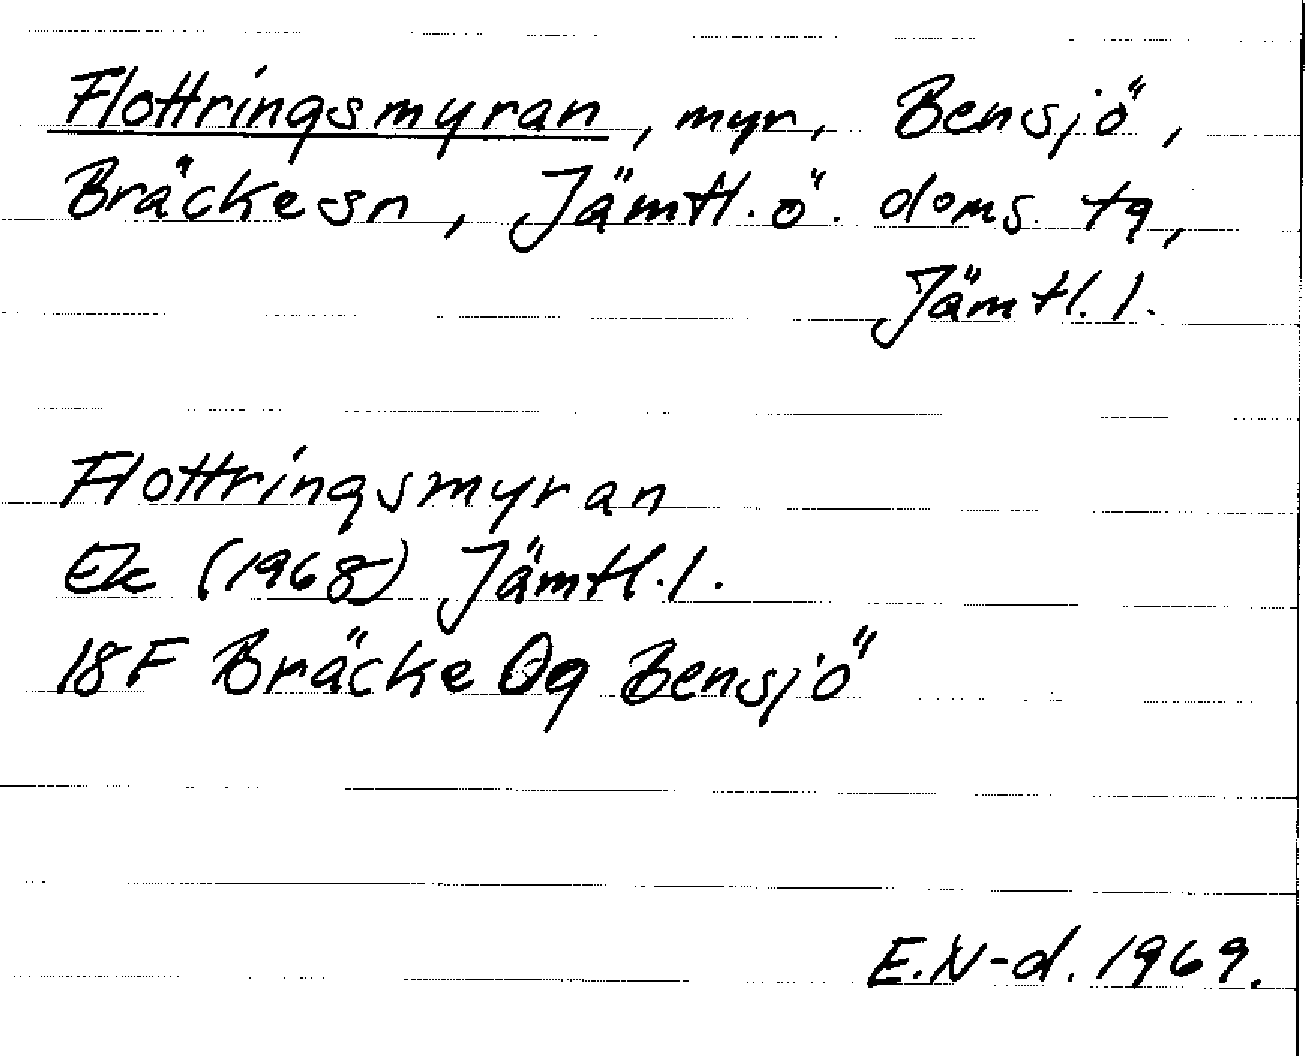 Flottringsmyran, myr, Bensjö,
Bräcke sn, Jämtl. ö. doms. tg,
Jämtl. l.
Flottringsmyran
Ek (1968) Jämtl. l.
18F Bräcke 0g Bensjö
E.N-d. 1969.